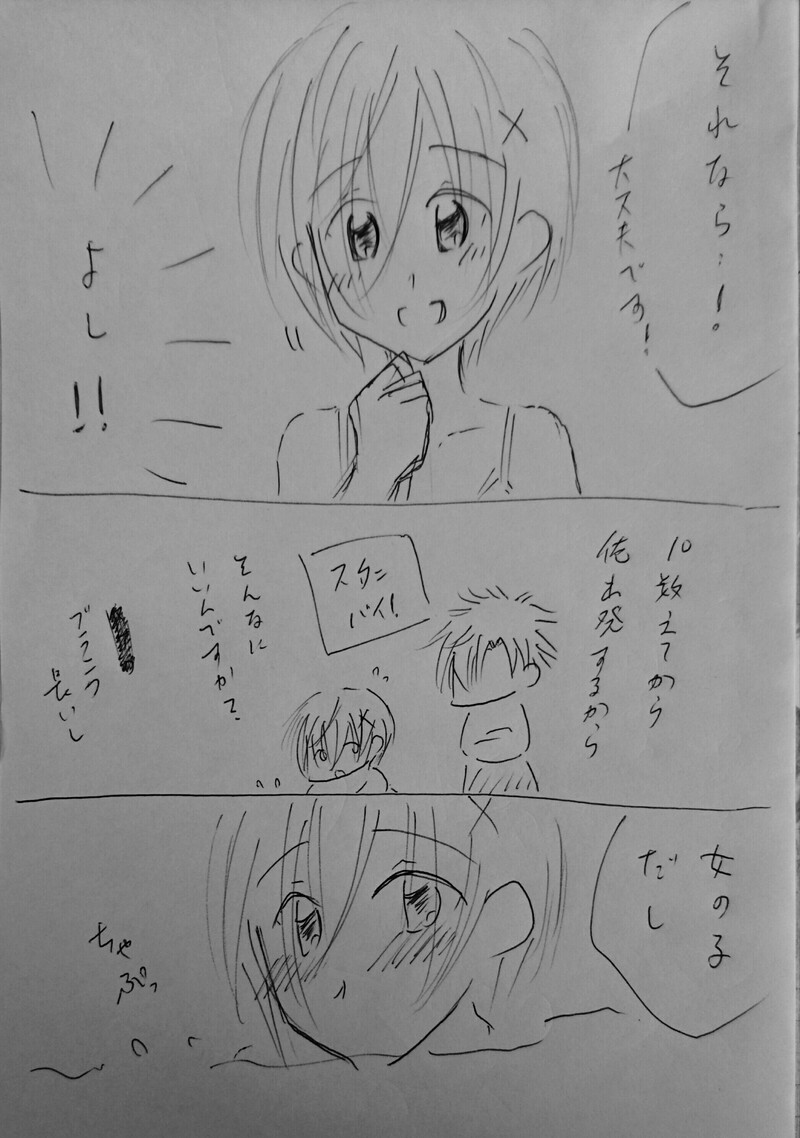 それなら…!
大丈夫です!
よし!!
10数えてから
俺出発するから
スタン
バイ!
そんなに
いいんですかて
長いし
女の子
だし
ちゃ
ぷっ